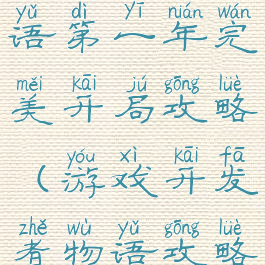 yǔ dì yī nián wán
语第一年完
měi kāi jú gōng lüè
美开局攻略
yóu xì kāi fā
（游戏开发
zhě wù yǔ gōng lüè
者物语攻略